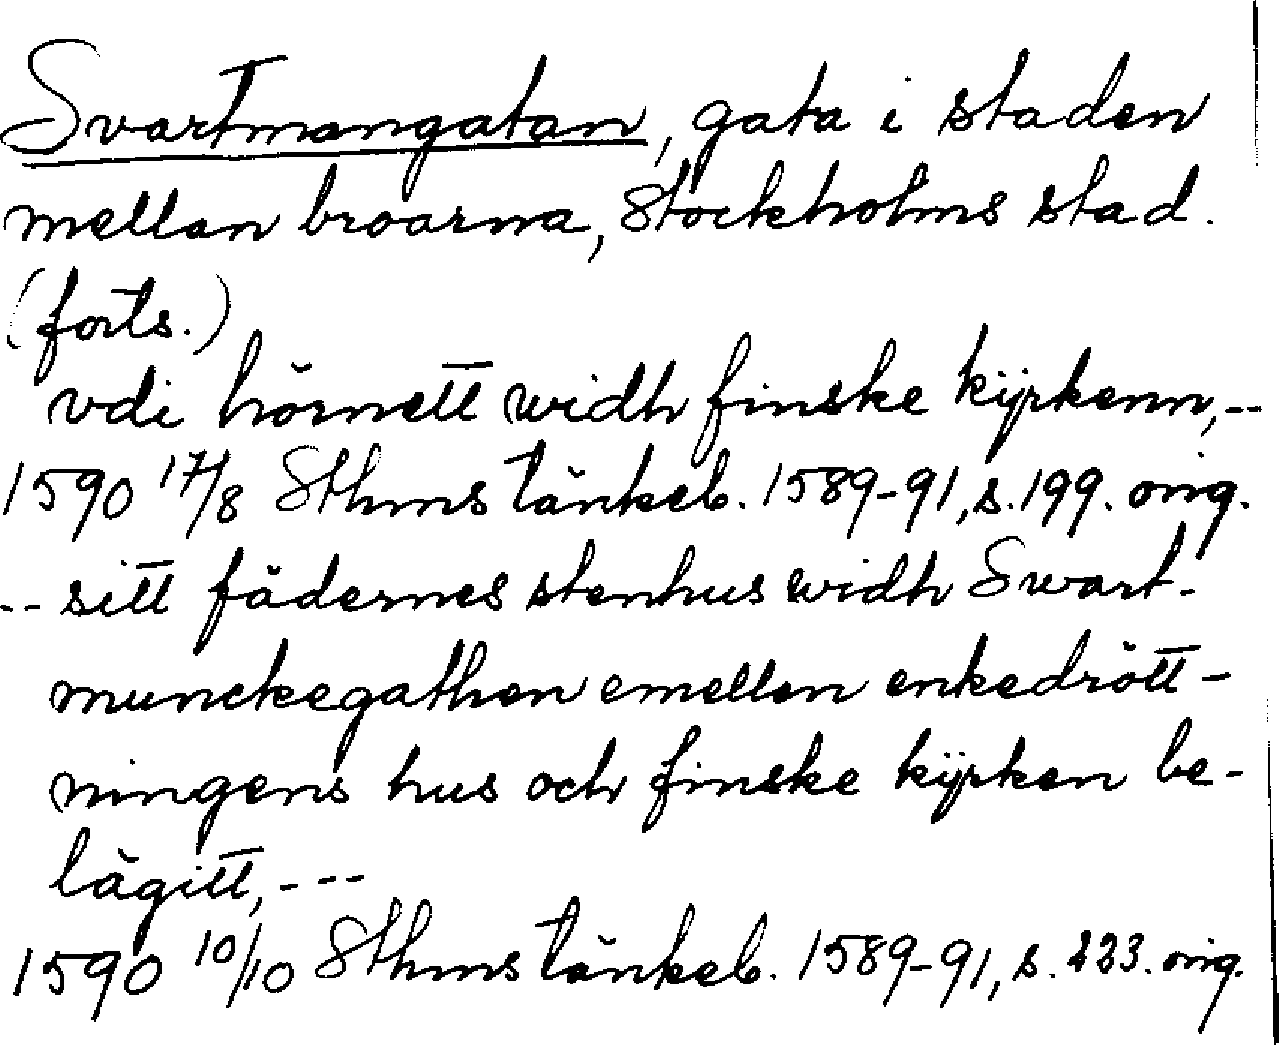 Svartmangatan, gata i staden
mellan broarna, Stockholms stad.
(forts.)
vdi hörnett widh finske kijrkenn,--
1590 17/8 Sthms tänkeb. 1589-91, s. 199. orig.
-- sitt fädernes stenhus widh Swart-
munckegathen emellen enkedrött-
ningens hus och finske kijrken be-
lägitt, ---
1590 10/10 Sthms tänkeb. 1589-91, s. 223. orig.